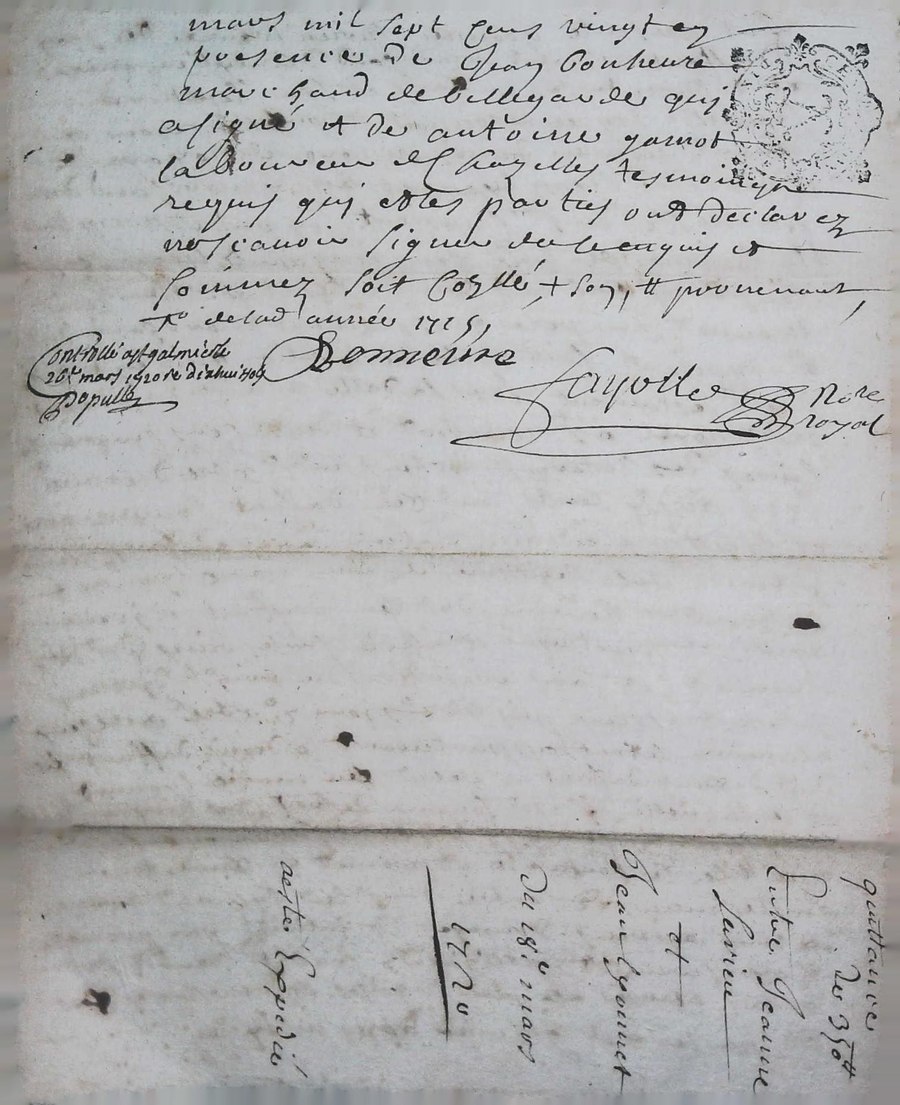 mars mil sept cens vingt en
presence de Jean bonheure
marchand de bellegarde qui
a signé et de antoine garnot
laboureur de Chazelles tesmoings
requis qui et les parties ont declarez
ne scavoir signer de ce enquis et
sommez soit
de lad année 1715,
Controllé a st galmier le
26e mars 1720 re dixhuit
Bonneure
Fayolle
Nore
royal
quittance
de 350tt
Entre Jeanne
et
Jean Lyonnet
du 18e mars
1720
aesté Expedié